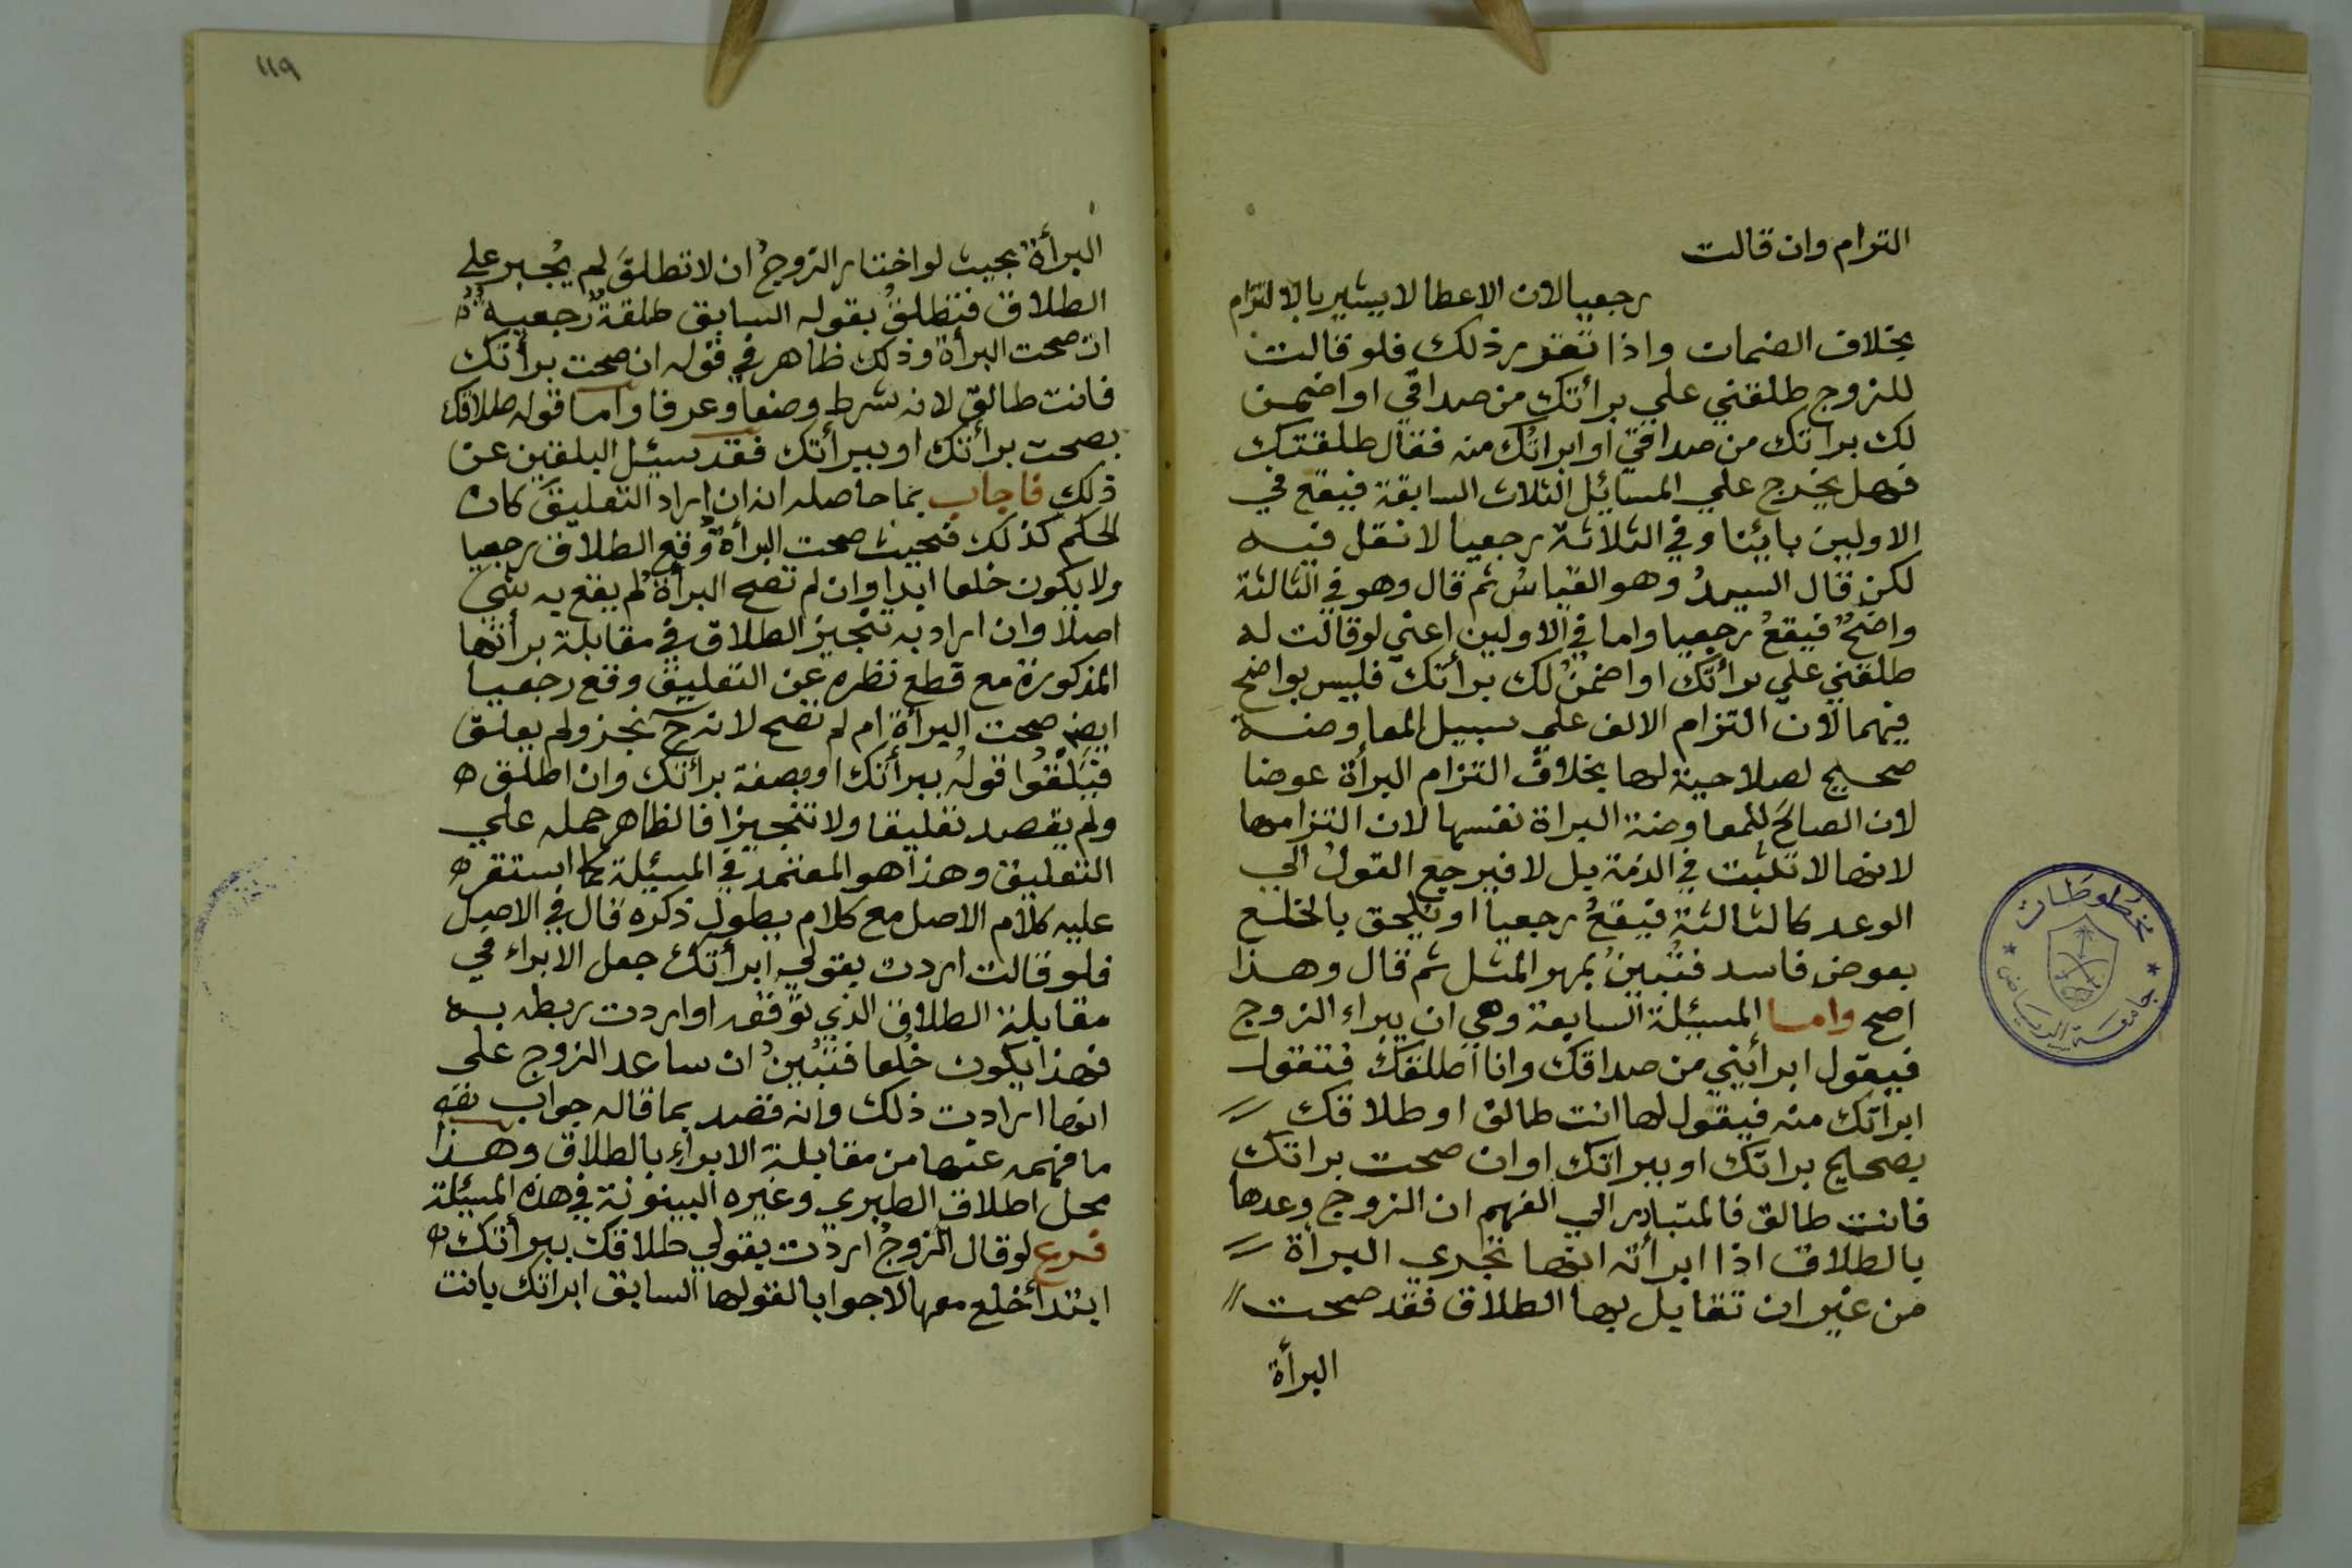 التزام وان قالت
رجعيا لان الاعطا لا يشير بالالتزام
بخلاف الضمان واذا تقرر ذلك فلو قالت
للزوج طلقني علي برأتك من صداقي او اضمن
لك براتك من صداقي او ابراتك منه فقال طلقتك
فهل يخرج علي المسائل الثلاث السابقة فيقع في
الاولين بائنا وفي الثلاثة رجعيا لا نقل فيه
لكن قال السيد وهو القياس ثم قال وهو في الثالثة
واضح فيقع رجعيا واما في الاولين اعني لو قالت له
طلقني علي برأتك او اضمن لك برأتك فليس بواضح
فيهما لان التزام الالف علي سبيل المعاوضة
صحيح لصلاحية لها بخلاف التزام البرأة عوضا
لان الصالح للمعاوضة البراة نفسها لان التزامها
لانها لا تثبت في الذمة بل لا فيرجع القول الي
الوعد كالثالثة فيقع رجعيا او يلحق بالخلع
بعوض فاسد فتبين بمهر المثل ثم قال وهذا
اصح واما المسئلة السابعة وهي ان يبراء الزوج
فيقول ابرأيني من صداقك وانا اطلقك فتقول
ابرأتك منه فيقول لها انت طالق او طلاقك
بصحيح براتك او ببراتك او ان صحت براتك
فانت طالق فالمتبادر الي الفهم ان الزوج وعدها
بالطلاق اذا ابرأته انها تجري البرأة
من غير ان تقابل بها الطلاق فقد صحت
البرأة
مخطوطات
جامعة الرياض
١١٩
البرأة بحيث لو اختار الزوج ان لا تطلق لم يجبر علي
الطلاق فتطلق بقوله السابق طلقة رجعية
ان صحت البرأة وذلك ظاهر في قوله ان صحت برأتك
فانت طالق لانه شرط وضعا وعرفا واما قوله طلاقك
بصحت برأتك او ببرأتك فقد سيئل البلقين عن
ذلك فاجاب بما حاصله انه ان اراد التعليق كان
الحكم كذلك فحيث صحت البرأة وقع الطلاق رجعيا
ولا يكون خلعا ابدا وان لم تصح البرأة لم يقع به شي
اصلا وان اراد به تنجيز الطلاق في مقابلة برأتها
المذكورة مع قطع نظره عن التعليق وقع رجعيا
ايضا صحت البرأة ام لم تصح لانه ح نجز ولم يعلق
قوله ببرأتك او بصفة برأتك وان اطلق
ولم يقصد تعليقا ولا تنجيزا فالظاهر حمله علي
التعليق وهذا هو المعتمد في المسيئلة كما استقر
عليه كلام الاصل مع كلام بطول ذكره قال في الاصل
فلو قالت اردت بقولي ابرأتك جعل الابراء في
مقابلة الطلاق الذي توقفه او اردت ربطه به
فهذا يكون خلعا فتبين ان ساعد الزوج علي
انها ارادت ذلك وانه قصد بما قاله جواب
ما فهمه عنها من مقابلة الابراء بالطلاق وهذا
محل اطلاق الطبري وغيره البينونة في هذه المسيئلة
فرع لو قال الزوج اردت بقولي طلاقك ببرأتك
ابتدأ خلع معها لا جوابا لقولها السابق ابراتك بانت